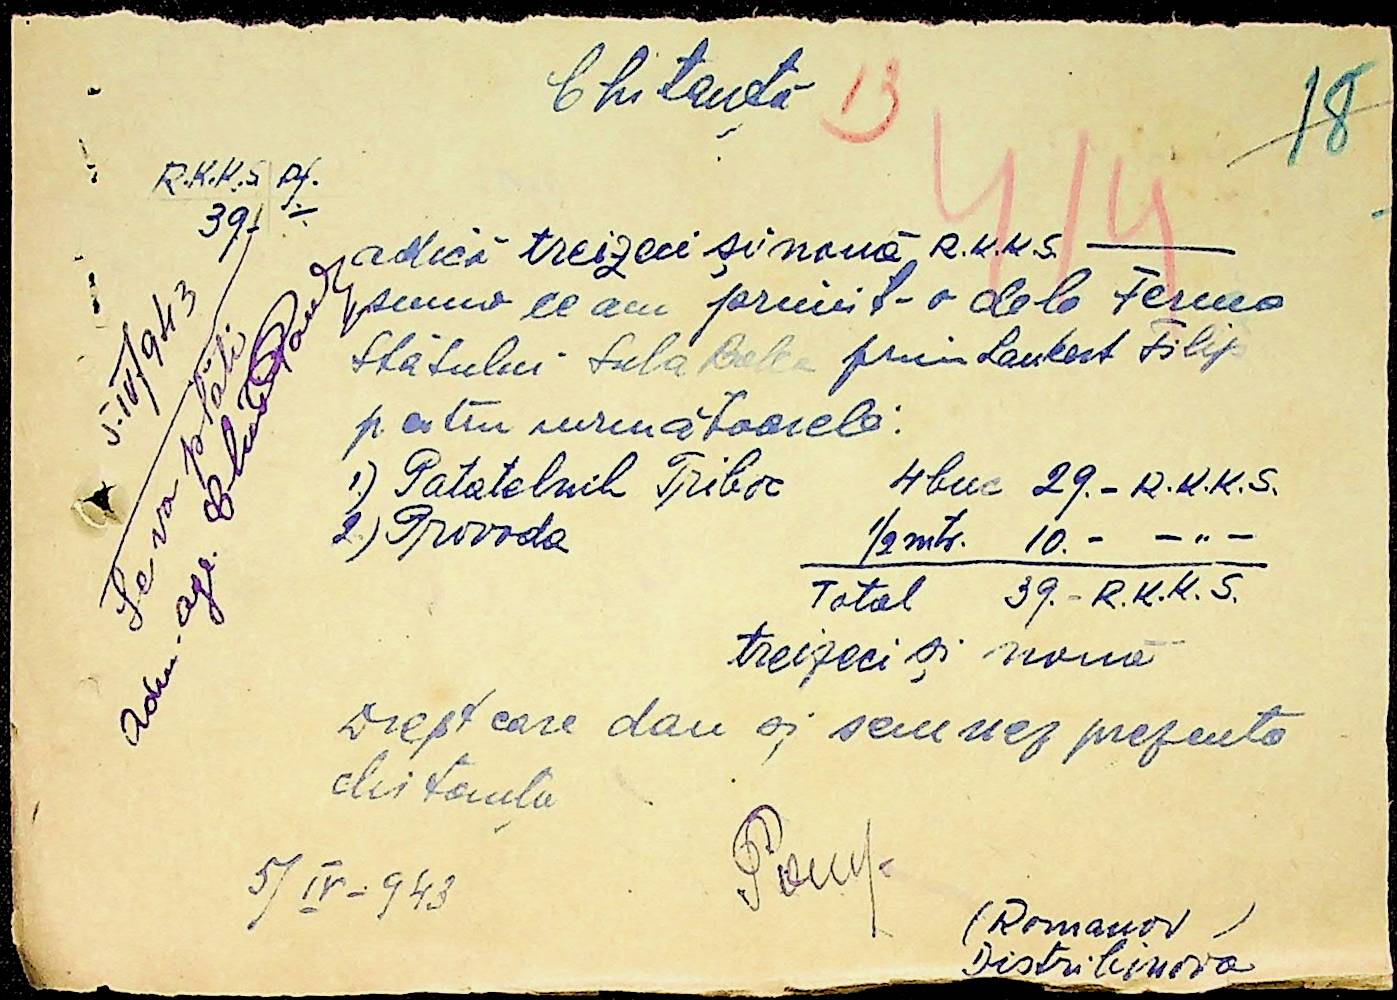 Chitanță
13
18
4/4
R.K.K.S pf.
39.-
adică treizeci și nouă R.K.K.S.
suma ce am primit-o dela Ferma
Statului Sula prin Lambert Filip
pentru următoarele:
1) Patatelnih Triboc 4 buc 29.- R.K.K.S.
2.) Provoda 1/2 mtr. 10.- -"-
Total 39.- R.K.K.S.
treizeci și nouă
Drept care dau și semnez prezenta
chitanța
5/IV-943
(Romanov)
5-IV/943
Se va plăti
Adm. agr.